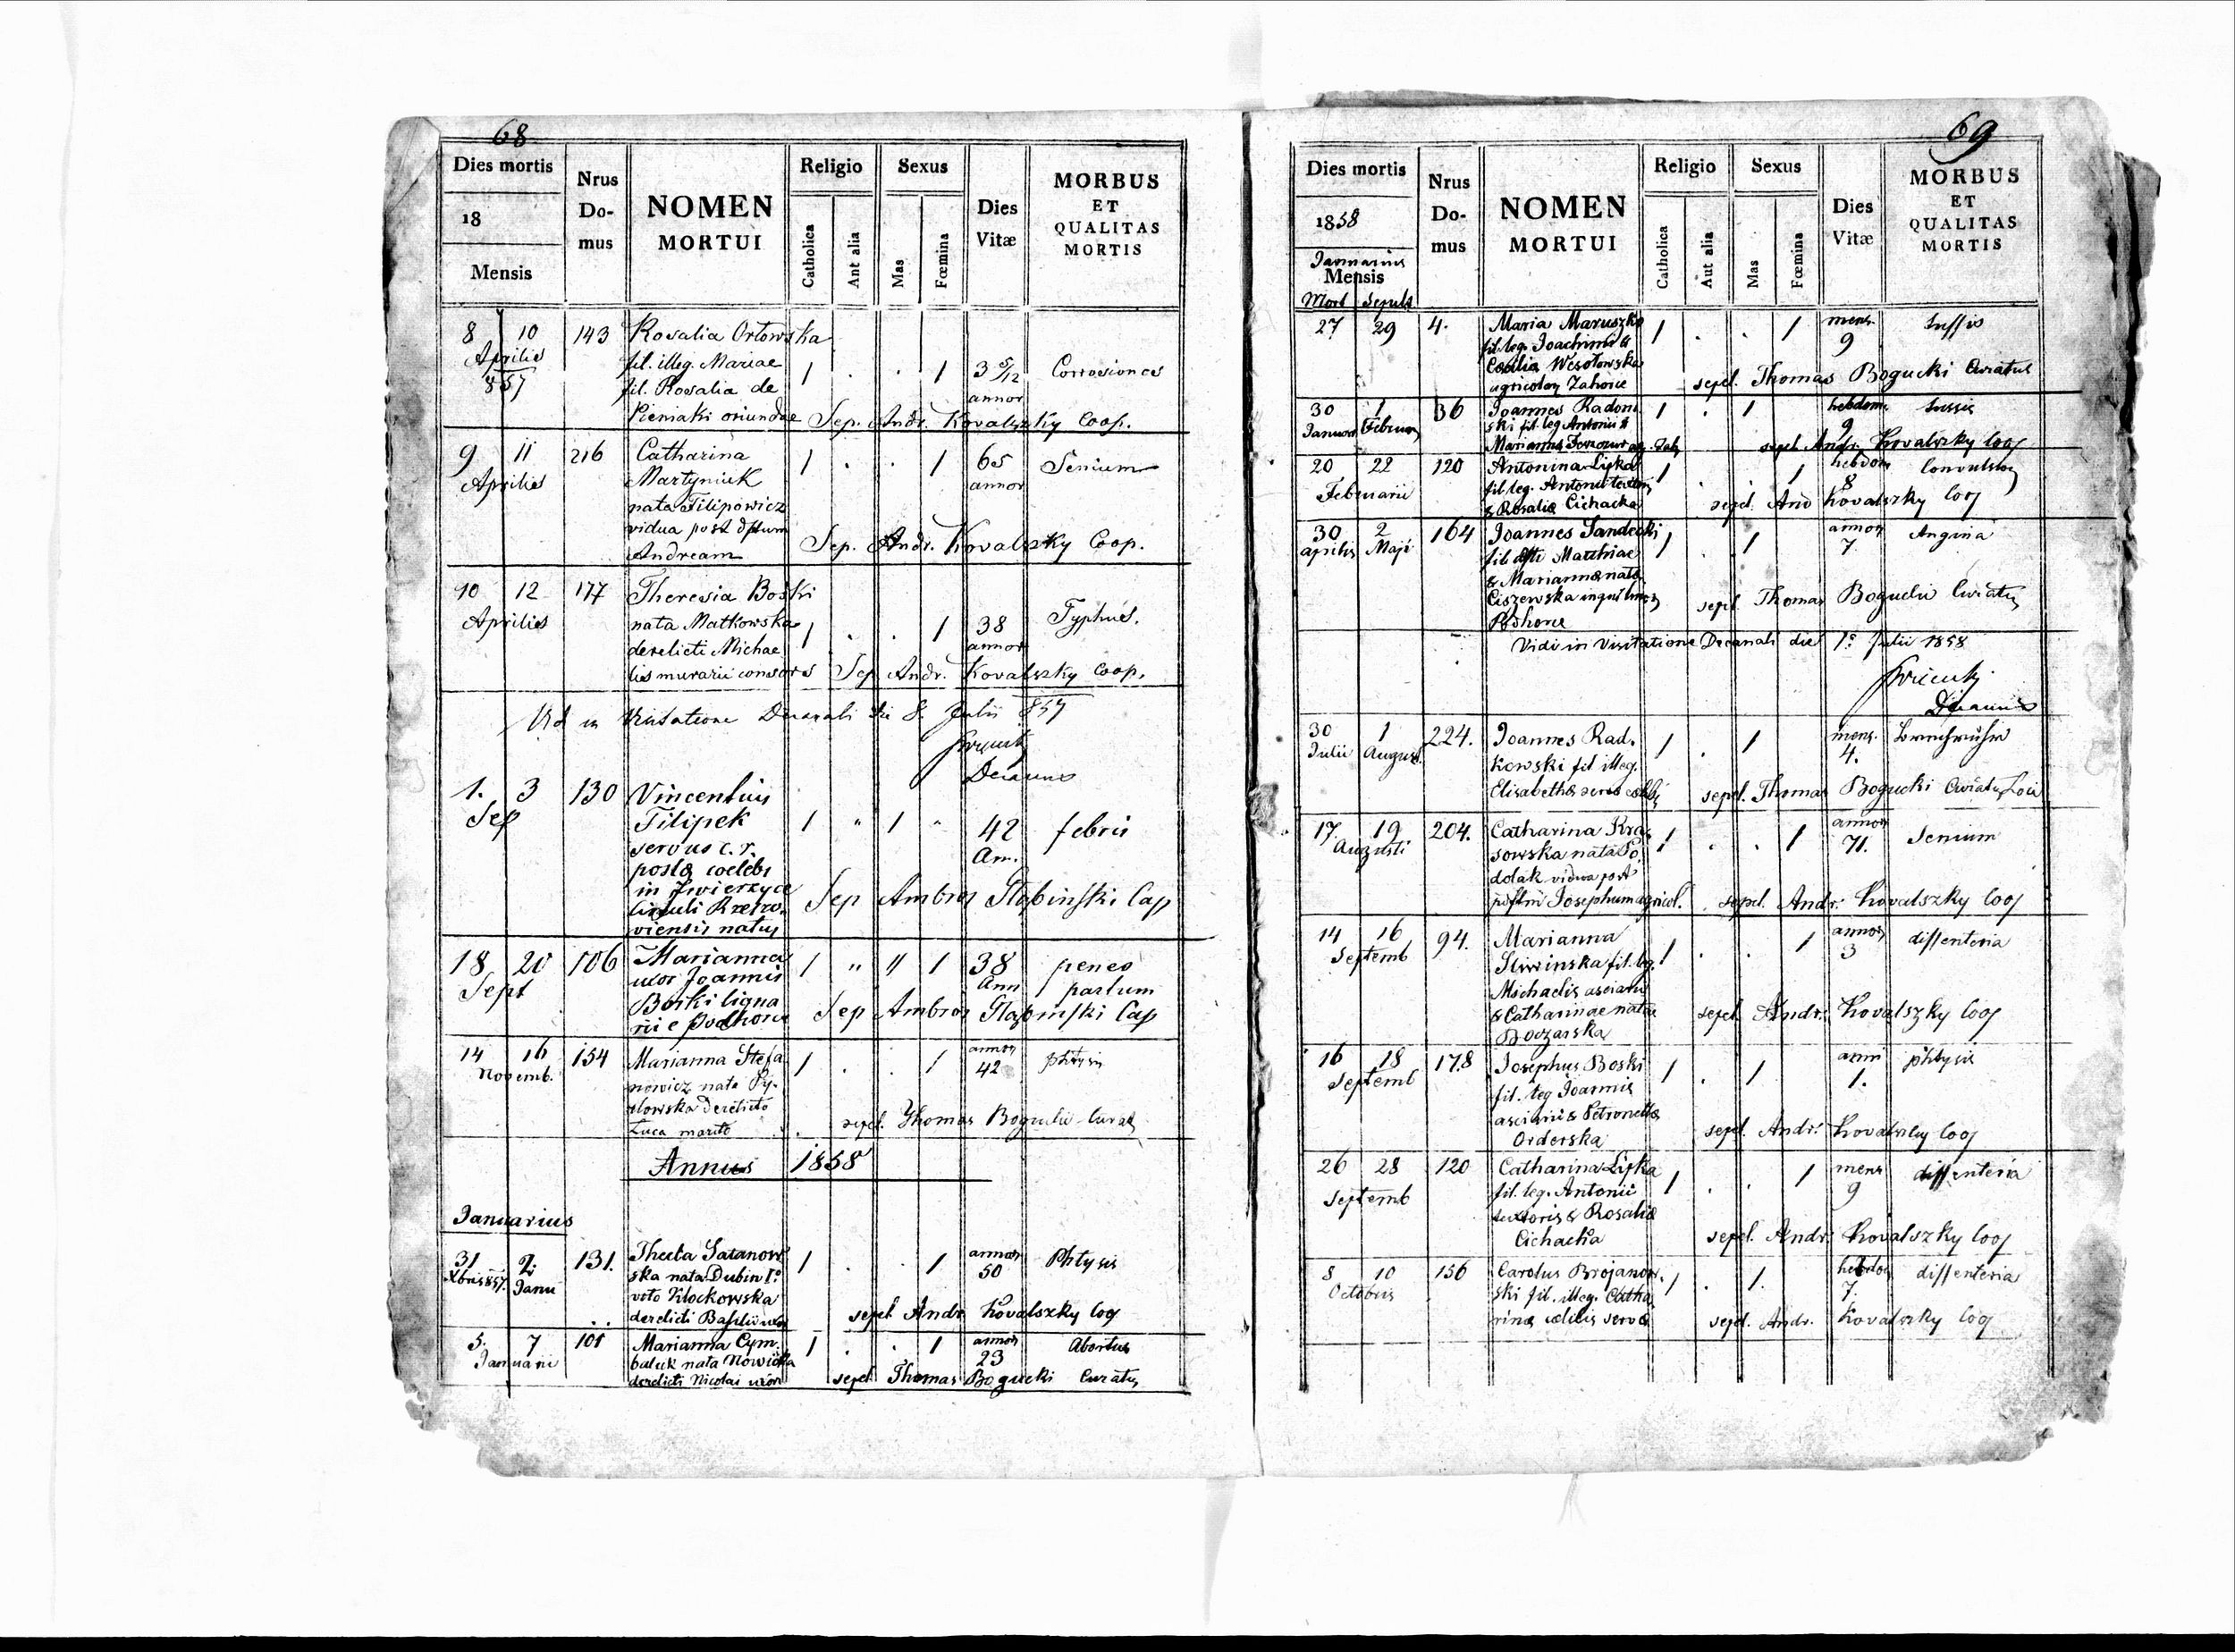 68
Dies mortis
18
Mensis
Nrus
Do-
mus
NOMEN
MORTUI
Religio
Catholica
Aut alia
Sexus
Mas
Fœmina
Dies
Vitæ
MORBUS
ET
QUALITAS
MORTIS
8 10 143 Rosalia Orłowska
Aprilis fil. illeg. Mariae 1 . . 1 3 5/12 Corrosiones
857 fil. Rosalia de annor
Pieniaki oriundae Sep. Andr. Kovalszky Coop.
9 11 216 Catharina 1 . . 1 65 Senium
Aprilis Martyniuk annor
nata Filipowicz
vidua post dftum
Andream Sep. Andr. Kovalszky Coop.
10 12 177 Theresia Boski
Aprilis nata Matkowska 1 . . 1 38 Typhus.
derelicti Michae annor
lis murarii consors Sep Andr. Kovalszky Coop.
Vid in Visitatione Decanali die 8. Julii 857
Decanus
1. 3 130 Vincentius
Sep Filipek 1 " 1 " 42 febris
servus c. r. Am.
posta coelebs
in Zwierzyce
natus Sep Ambros Słabinski Cap
18 20 106 Marianna 1 " " 1 38 penes
Sept uxor Joannis Ann partum
Boski ligna
rii e Podhorce Sep Ambros Słabinski Cap
14 16 154 Marianna Stefa 1 . . 1 annor 42 phtysis
Novemb. nowicz nata Py-
rlowska derelicto
Luca marito sepel. Thomas Bogucki Curat
Annus 1858
Januarius
31 2. 131. Thecla Saranow 1 . . 1 annor 50 Phtysis
Xbris 857. Janu ska nata Dubin 1o
voto Klockowska
derelicti Basilii uxor sepel. Andr Kovalszky Coop
5. 7 101 Marianna Cym. 1 . . 1 annor 23 Abortus
Januarii baluk nata Nowicka
derelicti Nicolai uxor sepel. Thomas Bogucki Curatus
69
Dies mortis
1858
Januarius
Mensis
Mort Sepult
Nrus
Do-
mus
NOMEN
MORTUI
Religio
Catholica
Aut alia
Sexus
Mas
Fœmina
Dies
Vitæ
MORBUS
ET
QUALITAS
MORTIS
27 29 4. Maria Maruszko 1 . . 1 mens. 9 tussis
fil. leg. Joachimi &
Cecilia Wesołowska
agricolar Zahorce sepel. Thomas Bogucki Curatus
30 1 36 Joannes Radom 1 . 1 hebdom 9 tussis
Januar Februar ski fil. leg Antonii &
Marianna sepel. Andr. Kovalszky Coop
20 22 120 Antonina Lipka 1 . . 1 hebdom 8 Convulsio
Februarii fil. leg. Antonii textoris
& Rosalia Cichacka sepel. And Kovalszky Coop
30 2 164 Joannes Sandecki 1 . 1 annor 7. Angina
Aprilis Maji fil Matthiae
& Marianna nata
Ciszewska
Podhorce sepel. Thomas Bogucki Curatus
Vidi in Visitatione Decanali die 1o Julii 1858
Decanus
30 1 224. Joannes Rad. 1 . 1 mens. 4.
Julii August kowski fil illeg.
Elisabetha sepel. Thomas Bogucki Curatus Loci
17. 19 204. Catharina Kra 1 . . 1 annor 71. Senium
Augusti sowska nata Po.
dolak vidua post
Josephum agricol. sepel. Andr. Kovalszky Coop
14 16 94. Marianna 1 . . 1 annor 3 dissenteria
Septemb Sliwinska fil. leg.
Michaelis asciarii
& Catharinae nata
Boozarska sepel. Andr. Kovalszky Coop
16 18 178 Josephus Boski 1 . 1 anni 1. phtysis
Septemb fil. leg Joannis
asciarii & Petronella
Orderska sepel. Andr. Kovalszky Coop
26 28 120 Catharina Lipka 1 . . 1 mens 9 dissenteria
Septemb fil. leg. Antonii
textoris & Rosalia
Cichacka sepel. Andr. Kovalszky Coop
8 10 156 Carolus Brojanow. 1 . 1. hebdom 7. dissenteria
Octobris ski fil. illeg. Catha
rina serva sepel. Andr. Kovalszky Coop